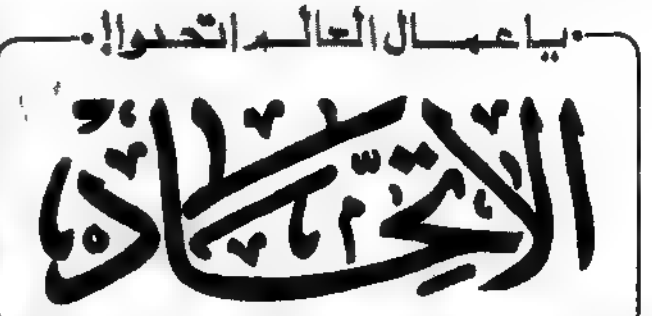 يا عمال العالم اتحدوا!
الاتحاد